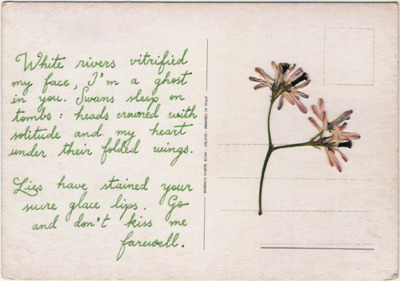 White rivers vitrified
my face, I'm a ghost
in you. Swans sleep on
tombs: heads crowned with
solitude and my heart
under their folded wings.
Lies have stained your
sucre glace lips. Go
and don't kiss me
farewell.